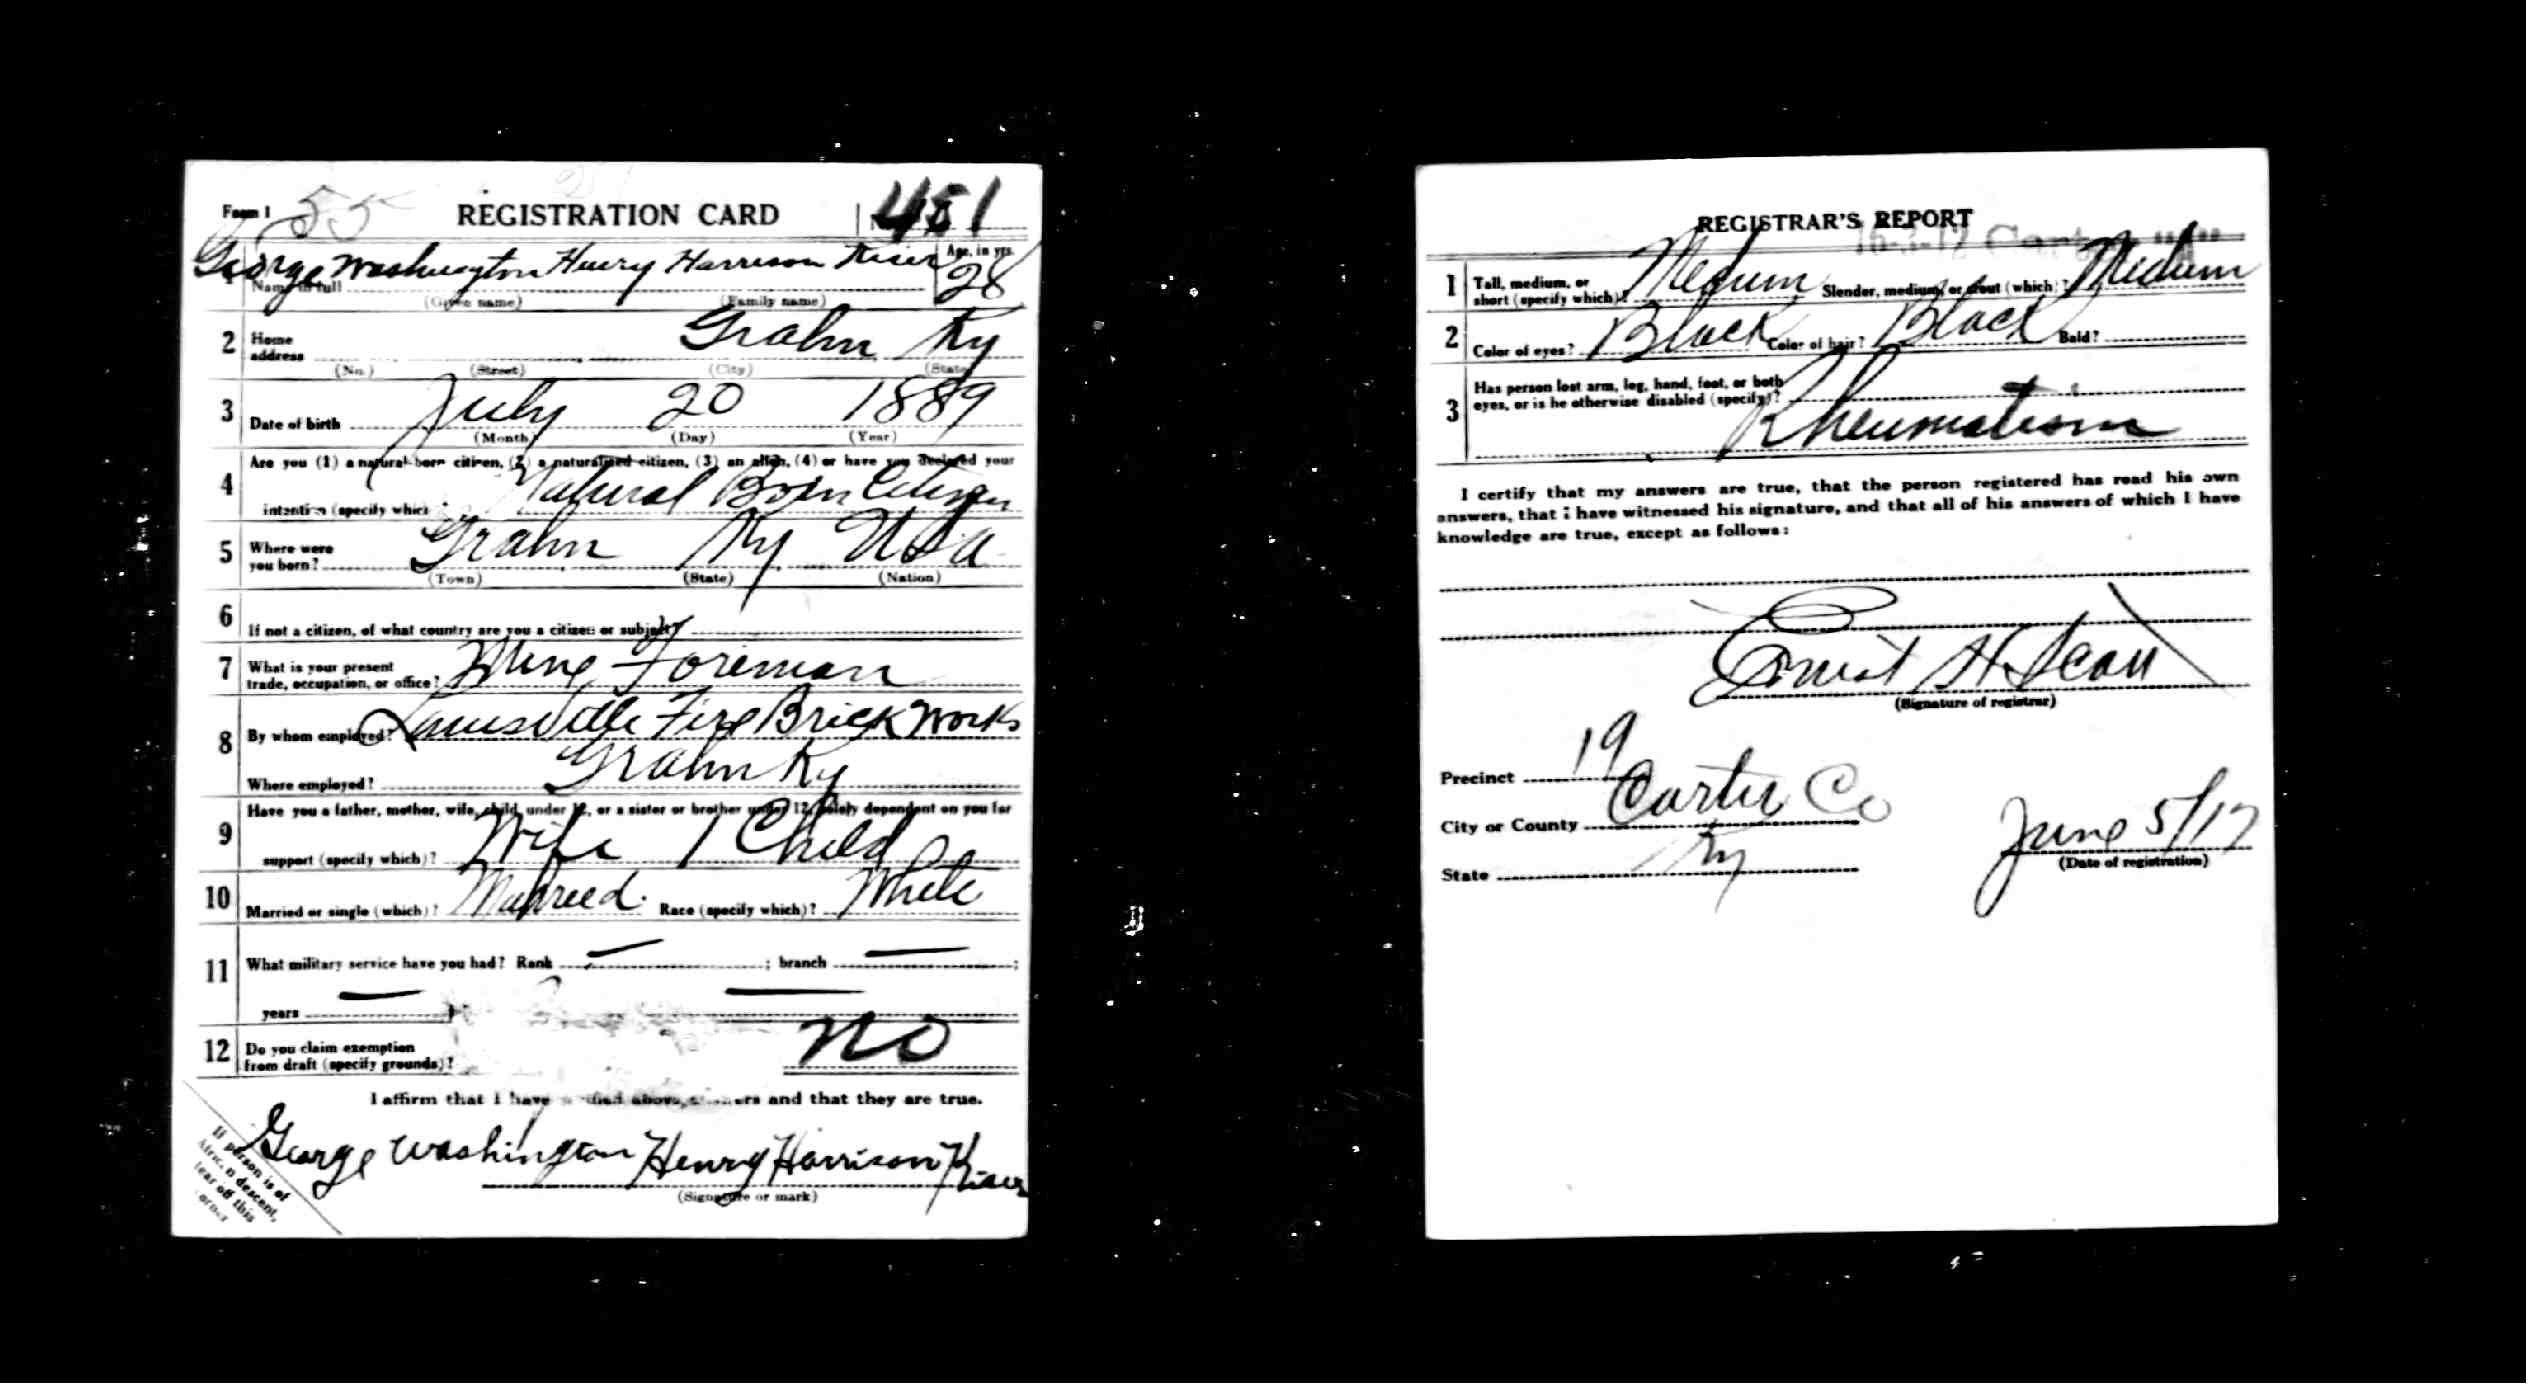 Form 1 55 REGISTRATION CARD 451
George Washington Henry Harrison Kiser Age, in yrs. 28
1 Name in full
(Given name) (Family name)
2 Home address Grahn Ky
(No.) (Street) (City) (State)
3 Date of birth July 20 1889
(Month) (Day) (Year)
4 Are you (1) a natural-born citizen, (2) a naturalized citizen, (3) an alien, (4) or have you declared your
intention (specify which)? Natural Born Citizen
5 Where were you born? Grahn Ky USA
(Town) (State) (Nation)
6 If not a citizen, of what country are you a citizen or subject?
7 What is your present trade, occupation, or office? Mine Foreman
8 By whom employed? Louisville Fire Brick Works
Where employed? Grahn Ky
9 Have you a father, mother, wife, child, under 12, or a sister or brother under 12, solely dependent on you for
support (specify which)? Wife 1 Child
10 Married or single (which)? Married. Race (specify which)? White
11 What military service have you had? Rank — ; branch — ;
years — —
12 Do you claim exemption from draft (specify grounds)? No
I affirm that I have verified above answers and that they are true.
George Washington Henry Harrison Kiser
(Signature or mark)
If person is of
African descent,
tear off this
corner
REGISTRAR'S REPORT
1 Tall, medium, or short (specify which)? Medium Slender, medium, or stout (which)? Medium
2 Color of eyes? Black Color of hair? Black Bald?
3 Has person lost arm, leg, hand, foot, or both
eyes, or is he otherwise disabled (specify)?
Rheumatism
I certify that my answers are true, that the person registered has read his own
answers, that i have witnessed his signature, and that all of his answers of which I have
knowledge are true, except as follows:
H
(Signature of registrar)
Precinct 19
City or County Carter Co
State Ky
June 5/17
(Date of registration)